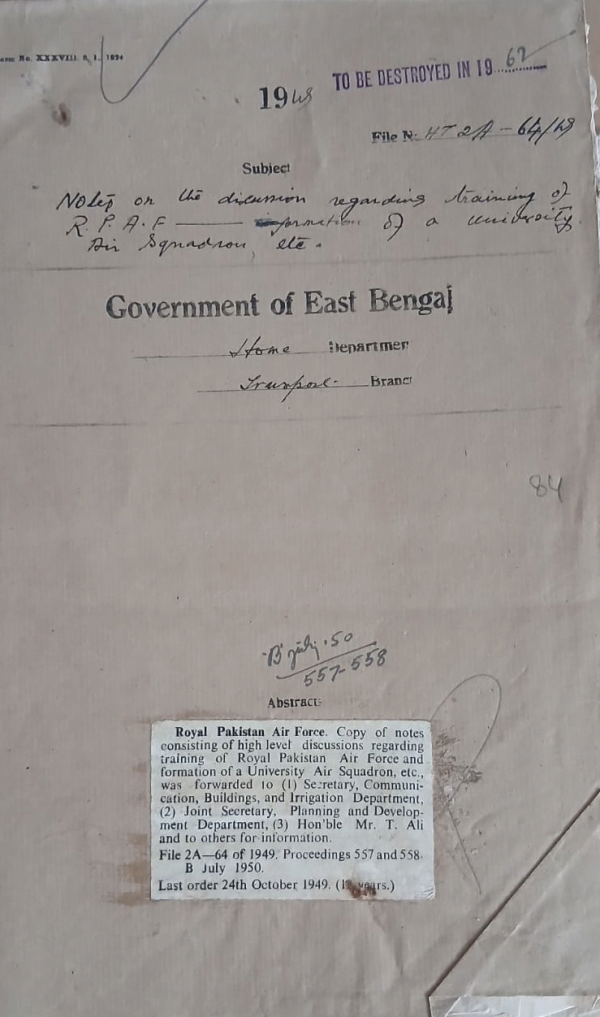 No. XXXVIII. S. 1. 1894
TO BE DESTROYED IN 19 62
1948
File No. HT 2A - 64/48
Subject
Notes on the dicussion regarding training of
R. P. A. F —— formation of a University
Air Squadron, etc.
Government of East Bengal
Home Department
Transport Branch
84
'B' July . 50
557-558
Abstract
Royal Pakistan Air Force. Copy of notes
consisting of high level discussions regarding
training of Royal Pakistan Air Force and
formation of a University Air Squadron, etc.,
was forwarded to (1) Secretary, Communi-
cation, Buildings, and Irrigation Department,
(2) Joint Secretary, Planning and Develop-
ment Department, (3) Hon'ble Mr. T. Ali
and to others for information.
File 2A—64 of 1949. Proceedings 557 and 558-
B July 1950.
Last order 24th October 1949. (years.)